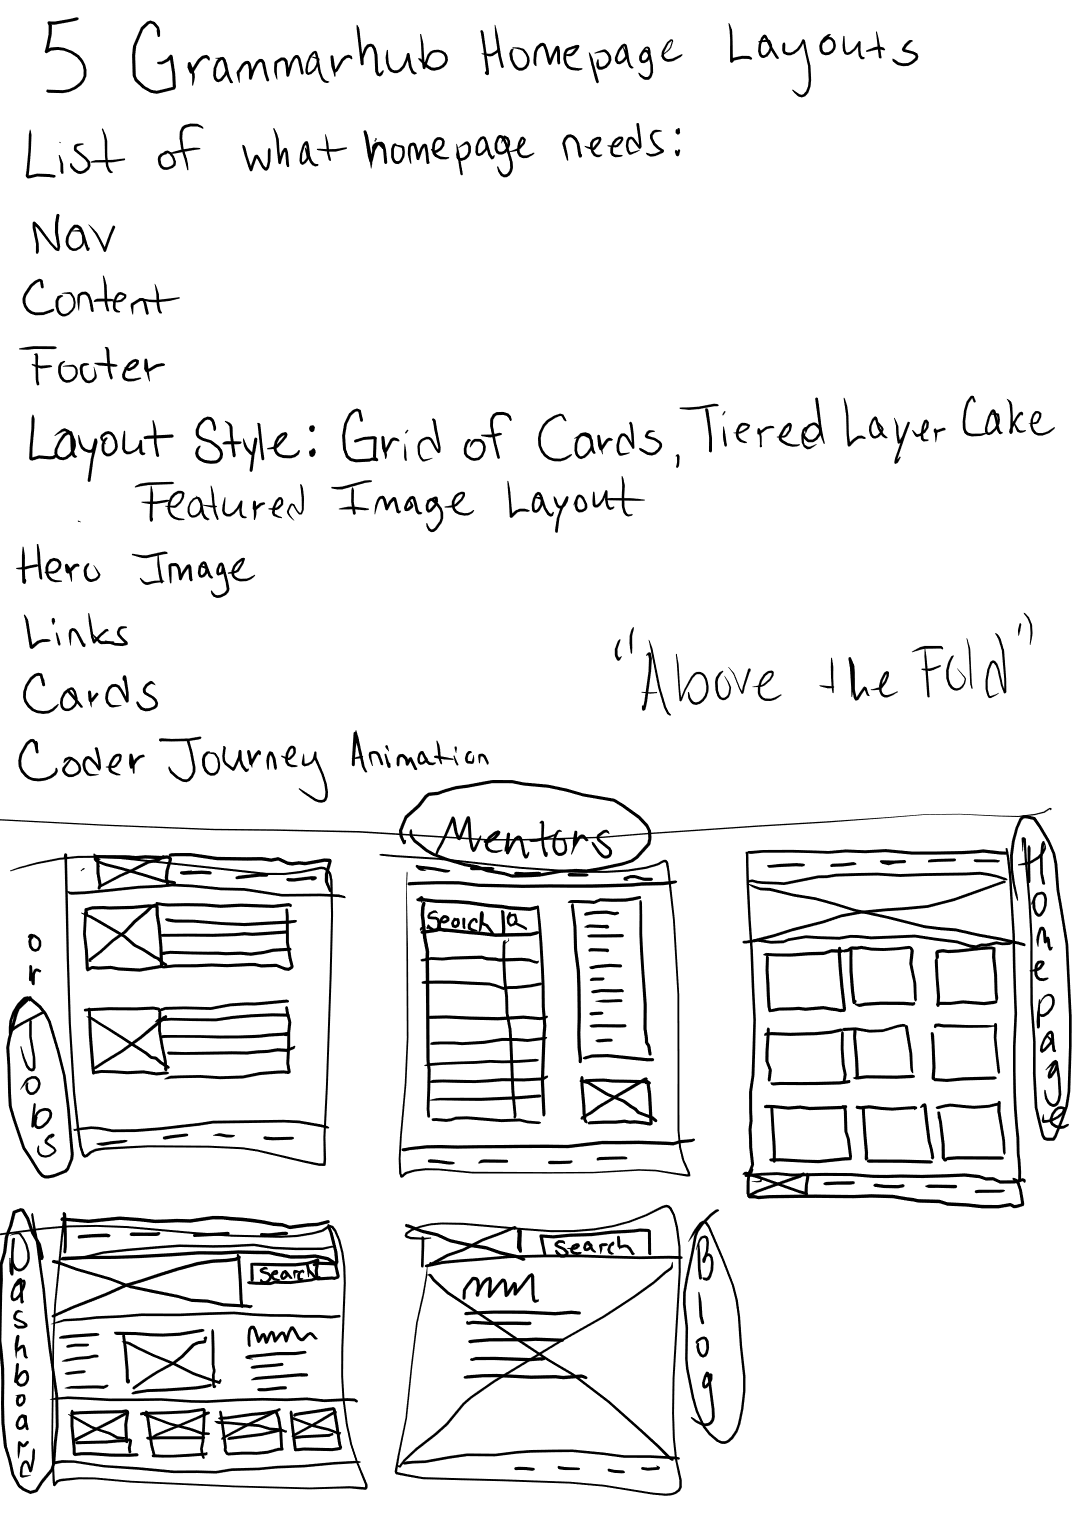 5 Grammarhub Homepage Layouts
List of what homepage needs:
Nav
Content
Footer
Layout Style: Grid of Cards, Tiered Layer Cake
Featured Image Layout
Hero Image
Links
Cards
"Above the Fold"
Coder Journey Animation
Mentors
or Jobs
Search
Homepage
Dashboard
Search
Search
Blog